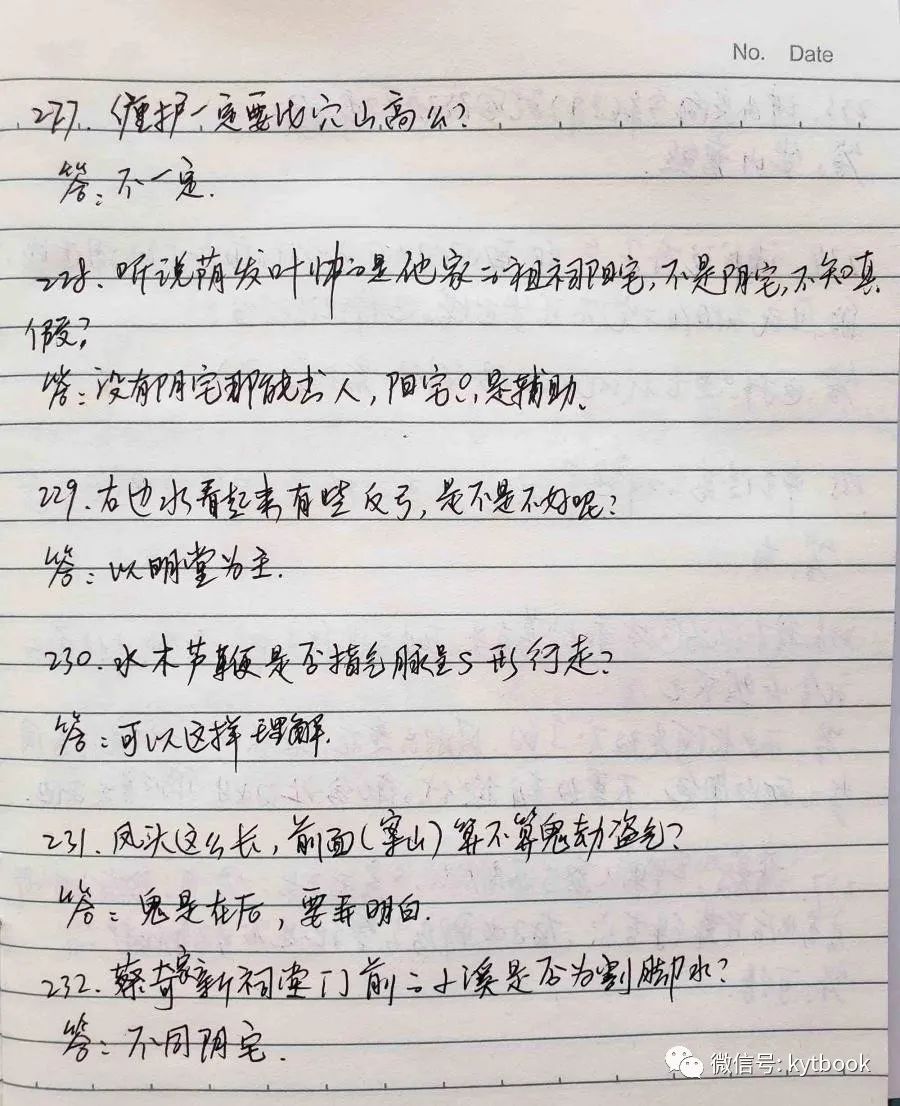 No. Date
227. 缠护一定要比穴山高么?
答: 不一定.
228. 听说荫发叶帅的是他家的祖祠阳宅, 不是阴宅, 不知真
假?
答: 没有阴宅那能出人, 阳宅只是辅助.
229. 右边水看起来有些反弓, 是不是不好呢?
答: 以明堂为主.
230. 水木芦鞭是否指气脉呈S形行走?
答: 可以这样理解.
231. 凤头这么长, 前面(案山)算不算鬼劫盗气?
答: 鬼是在后, 要弄明白.
232. 蔡奇家新祠堂门前的小溪是否为割脚水?
答: 不同阴宅.
微信号: kytbook